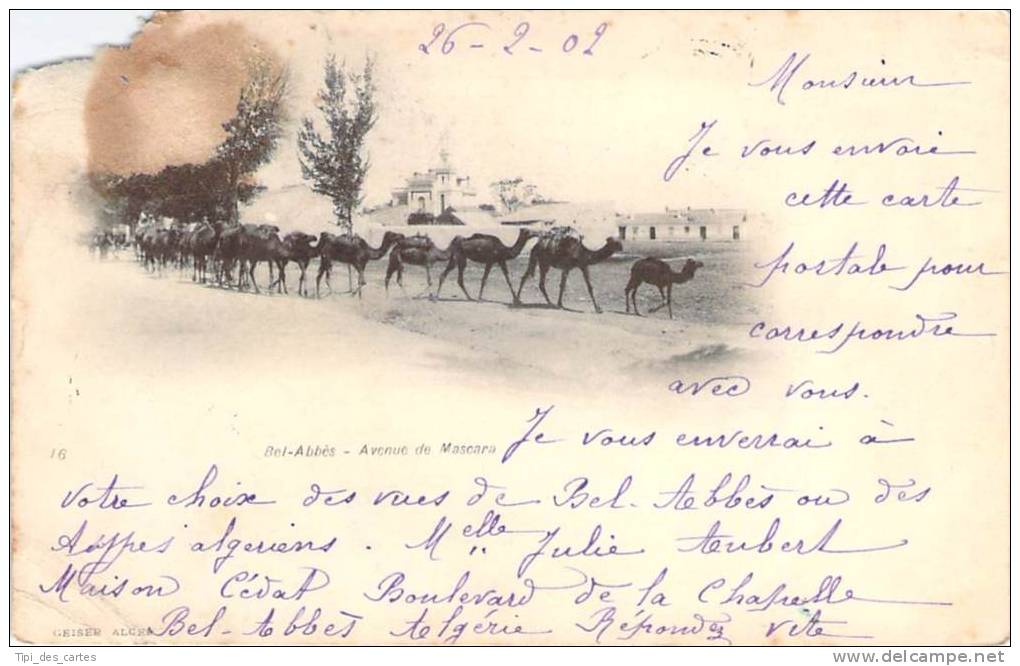 26-2-02
Monsieur
Je vous envoie
cette carte
postale pour
correspondre
avec vous.
Je vous enverrai à
16
Bel-Abbès - Avenue de Mascara
votre choix des vues de Bel-Abbès ou des
types algeriens. Melle Julie Aubert
Maison Cédat Boulevard de la Chapelle
GEISER ALGER
Bel-Abbès Algérie Répondez vite
Tipi_des_cartes
www.delcampe.net